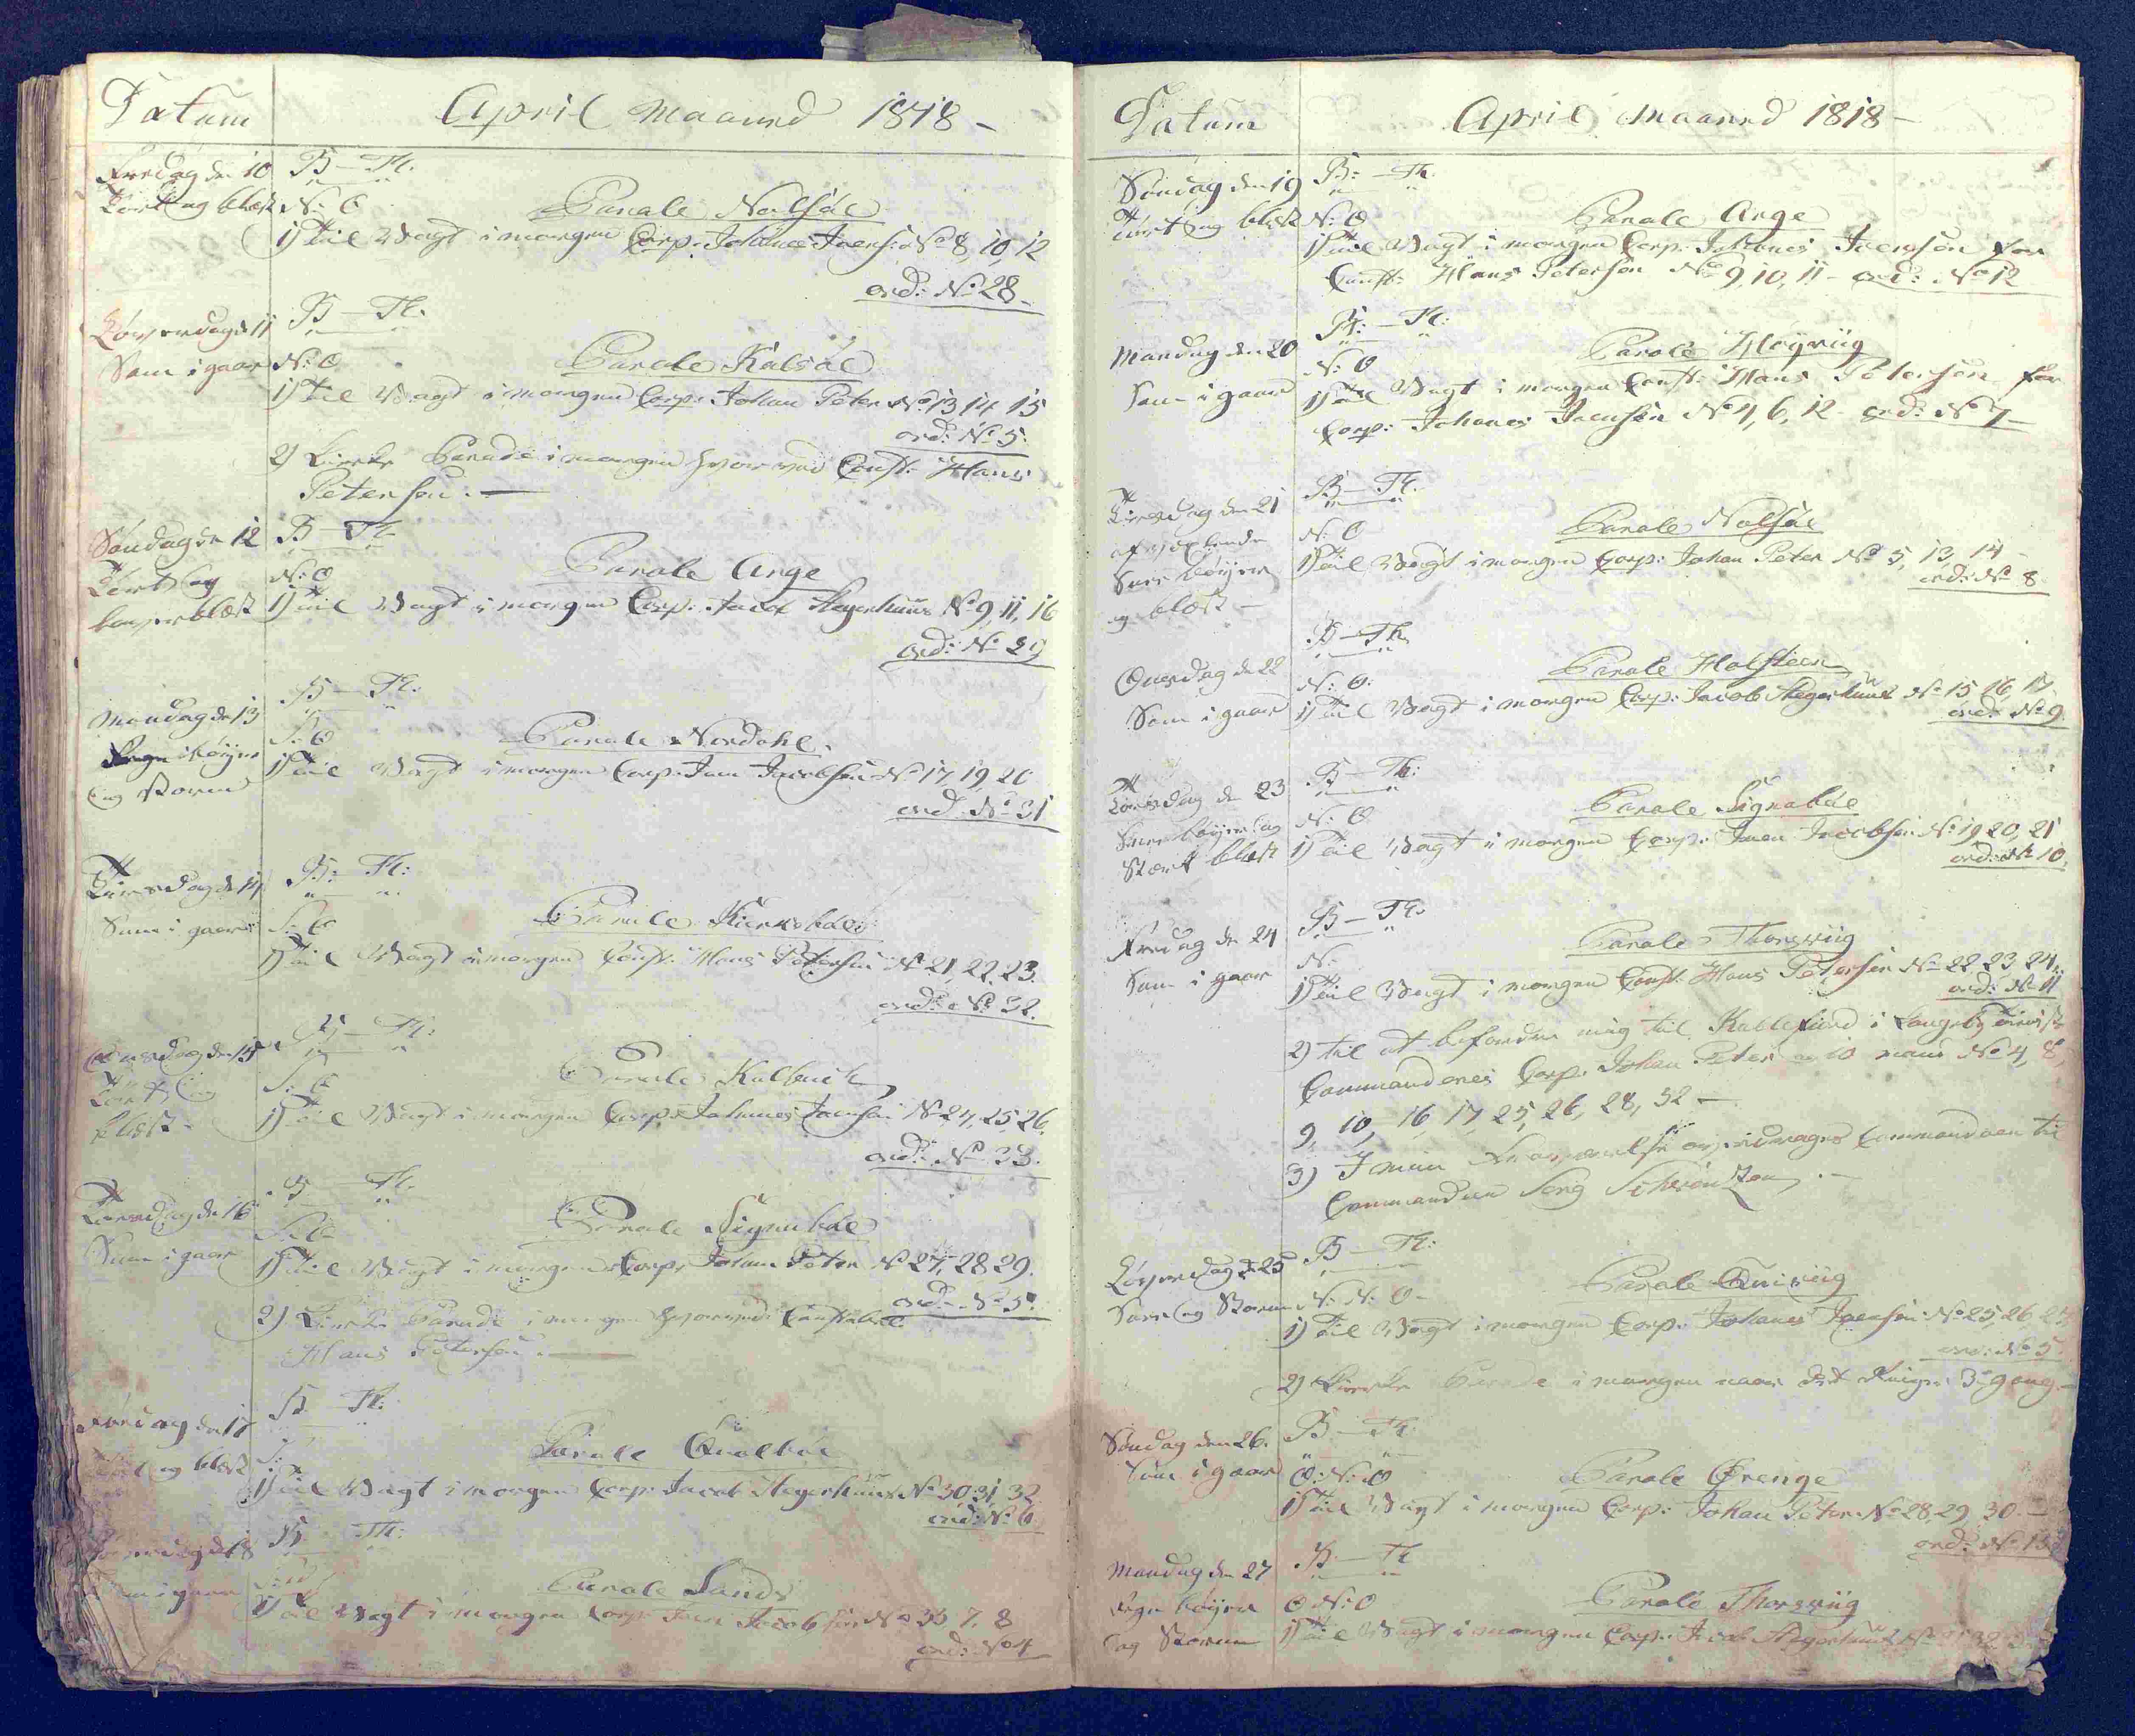 Datum
April Maaned 1818 -
Fredag den 10
Tört og blæst
B - Fl:
N: O
Parole Nolsöe
1) Til Vagt i morgen Corp: Johannes Joensen No 8, 10, 12
ord: No 28 -
Löverdag d 11
Som i gaar
B - Fl:
N: O
Parole Kalsöe
1) Til Vagt i morgen Corp: Johan Peter No 13 14 15
ord: No 5.
2) Kirke Parade i morgen hvorved Const: Hans
Petersen. -
Söndag den 12
Tört og
blæst
B - Fl:
N: O
Parole Arge
1) Til Vagt i morgen Corp: Jacob Hegerhuus No 9, 11, 16
ord: No 29
Mandag d 13
Regn Böyer
og Storm
B - Fl:
S: O
Parole Nordahl.
1) Til Vagt i morgen Corp: Joen Jacobsen No 17, 19, 20
ord: No 31
Tirsdag d 14
Som i gaar
B: - Fl:
S: O
Parole Kirkeböe
1) Til Vagt i morgen Const: Hans Petersen No 21, 22, 23.
ord: No 32.
Onsdag den 15
Tört og
blæst -
B - Fl:
S: O
Parole Kalbach
1) Til Vagt i morgen Corp: Johannes Joensen No 24, 25, 26.
ord: No 33.
Torsdag den 16
Som i gaar
B - Fl.
S: O
Parole Signaböe
1) Til Vagt i morgen Corp: Johan Peter No 27, 28 29.
ord: No 5.
2) Kirke Parade i morgen hvorved Constabel
Hans Petersen. -
Fredag den 17
Tört og blæst
B - Fl:
Parole Qualböe
1) Til Vagt i morgen Corp: Jacob Hegerhuus No 30, 31, 32
ord: No 6.
Löverdag d 18
Som i gaar
B - Fl:
Parole Sands
1) Til Vagt i morgen Corp: Joen Jacobsen No 33, 7, 8
ord: No 4
Datum
April Maaned 1818 -
Söndag den 19
Tört og blæst
B: - Fl:
N: O
Parole Arge
1) Til Vagt i morgen Corp: Johannes Joensen for
Const: Hans Petersen No 9, 10, 11 - ord: No 12
Mandag den 20
Som i gaar
B: - Fl:
N: O
Parole Höyviig
1) Til Vagt i morgen Const: Hans Petersen for
Corp: Johannes Joensen No 4, 6, 12 ord: No 7 -
Tirsdag den 21
afvexlende
Snee böyer
og blæst -
B - Fl:
N: O
Parole Nolsöe
1) Til Vagt i morgen Corp: Johan Peter No 5, 13, 14 -
ord: No 8
Onsdag d 22
Som i gaar
B - Fl:
N: O.
Parole Holsteen
1) Til Vagt i morgen Corp: Jacob Hegerhuus No 15 16, 17.
ord: No 9.
Torsdag den 23
Snee böyer og
Stærk blæst
B - Fl:
N: O
Parole Signaböe
1) Til Vagt i morgen Corp: Joen Jacobsen No 19, 20, 21
ord: No 10.
Fredag den 24
Som i gaar
B - Fl:
N:
Parole Thorsviig
1) Til Vagt i morgen Const: Hans Petersen No 22, 23 24.
ord: No 11
2) til at befordre mig til i
Commanderes Corp: Johan Peter og 10 mand No 4, 8,
9, 10, 16, 17, 25, 26, 28, 32 -
3) I min Fraværelse Commandoen til
Commandeur Serg -
Löverdag d 25
Snee og Storm
B - Fl:
N: N: O -
Parole Quiviig
1) Til Vagt i morgen Corp: Johannes Joensen No 25, 26 27
ord: No 5
2) Kirke Parade i morgen naar det Ringer 3de gang -
Söndag den 26.
Som i gaar
B - Fl:
O: N: O
Parole Örenge
1) Til Vagt i morgen Corp: Johan Peter No 28, 29, 30. -
ord: No 13
Mandag den 27
Regn böyer
og Storm
B - Fl
O N: O
Parole Thorsviig
1) Til Vagt i morgen Corp: Jacob Hegerhuus No